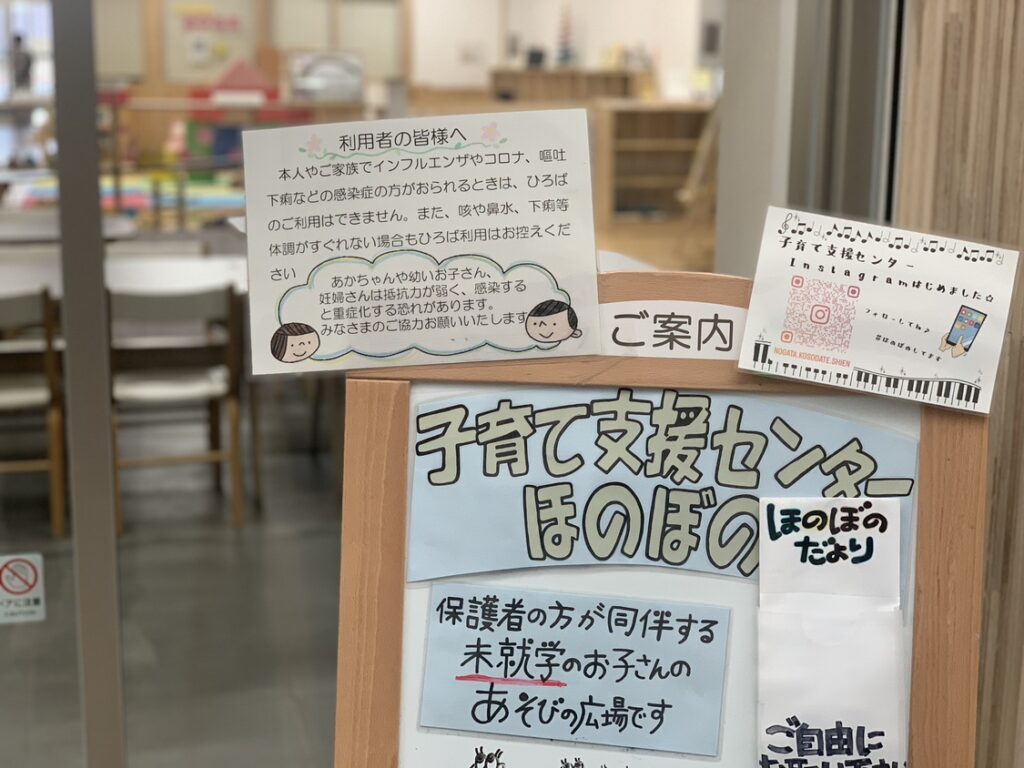 利用者の皆様へ
本人やご家族でインフルエンザやコロナ、嘔吐
下痢などの感染症の方がおられるときは、ひろば
のご利用はできません。また、咳や鼻水、下痢等
体調がすぐれない場合もひろば利用はお控えくだ
さい
あかちゃんや幼いお子さん、
妊婦さんは抵抗力が弱く、感染する
と重症化する恐れがあります。
みなさまのご協力お願いいたします
ご案内
子育て支援センター
Instagramはじめました☆
フォローしてね♪
NOGATA.KOSODATE.SHIEN
子育て支援センター
ほのぼの
ほのぼの
だより
保護者の方が同伴する
未就学のお子さんの
あそびの広場です
ご自由に
ドアに注意